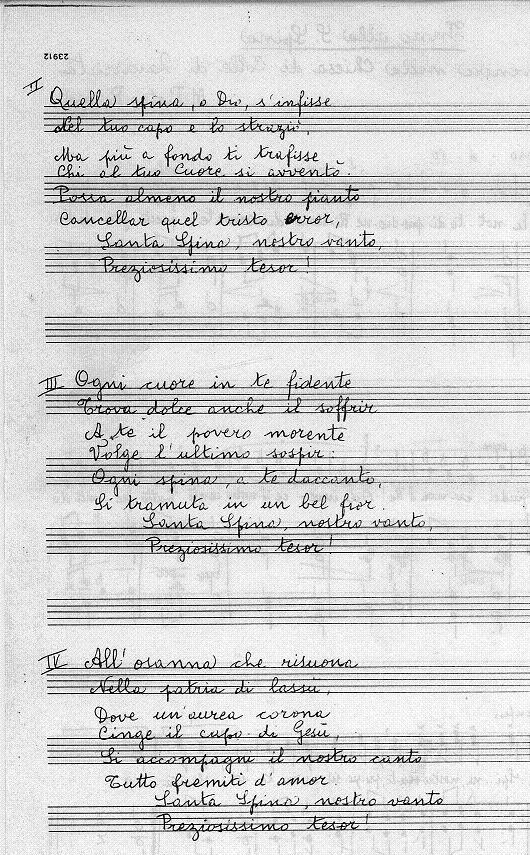 23912
II
Quella spina, o Dio, s'infisse
Nel tuo capo e lo straziò,
Ma più a fondo ti trafisse
Chi al tuo Cuore si avventò.
Possa almeno il nostro pianto
Cancellar quel tristo error,
Santa Spina, nostro vanto,
Preziosissimo tesor!
III Ogni cuore in te fidente
Trova dolce anche il soffrir
A te il povero morente
Volge l'ultimo sospir:
Ogni spina, a te daccanto,
Si tramuta in un bel fior.
Santa Spina, nostro vanto,
Preziosissimo tesor!
IV All'osanna che risuona
Nella patria di lassù,
Dove un'aurea corona
Cinge il capo di Gesù,
Si accompagni il nostro canto
Tutto fremiti d'amor
Santa Spina, nostro vanto
Preziosissimo tesor!